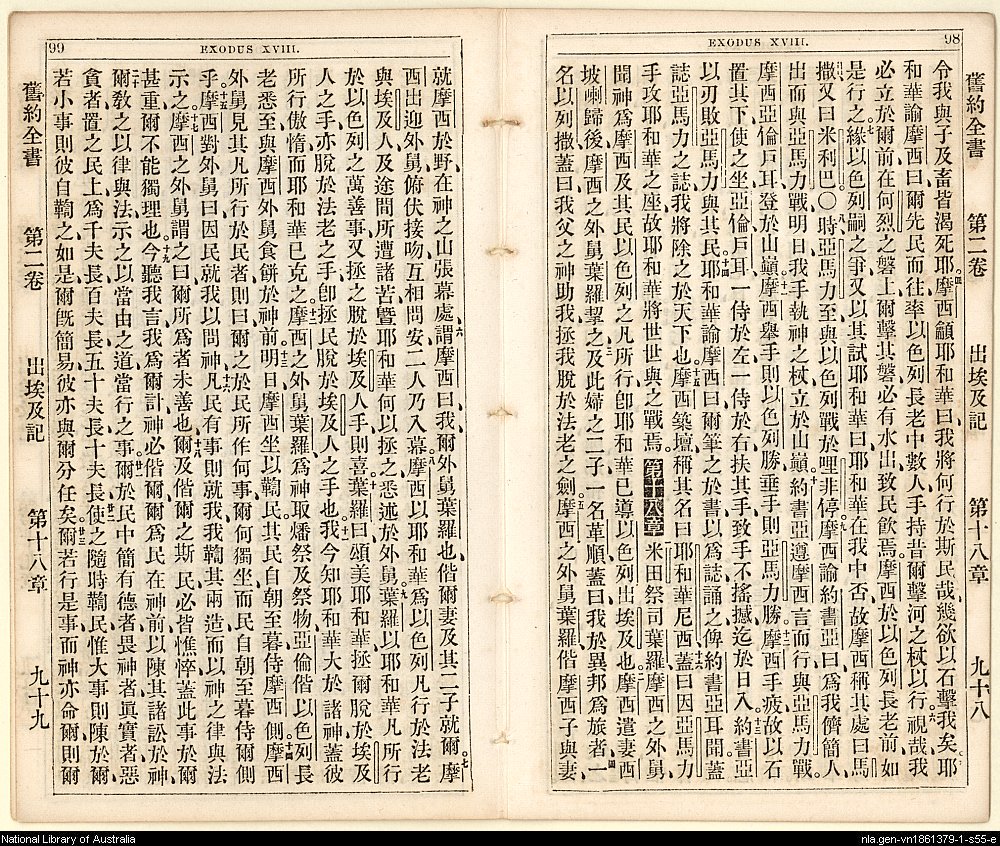 EXODUS XVIII.
98
令我與子及畜皆渴死耶摩西籲耶和華曰我將何行於斯民哉幾欲以石擊我矣耶
和華諭摩西曰爾先民而往率以色列長老中數人手持昔爾擊河之杖以行視哉我
必立於爾前在何烈之磐上爾擊其磐必有水出致民飲焉摩西於以色列長老前如
是行之緣以色列嗣之爭又以其試耶和華曰耶和華在我中否故摩西稱其處曰馬
撒又曰米利巴〇時亞馬力至與以色列戰於哩非停摩西諭約書亞曰爲我儕簡人
出而與亞馬力戰明日我手執神之杖立於山巔約書亞遵摩西言而行與亞馬力戰
摩西亞倫戶耳登於山巔摩西舉手則以色列勝垂手則亞馬力勝摩西手疲故以石
置其下使之坐亞倫戶耳一侍於左一侍於右扶其手致手不搖撼迄於日入約書亞
以刃敗亞馬力與其民耶和華諭摩西曰爾筆之於書以爲誌誦之俾約書亞耳聞蓋
誌亞馬力之誌我將除之於天下也摩西築壇稱其名曰耶和華尼西蓋曰因亞馬力
手攻耶和華之座故耶和華將世世與之戰焉第十八章米田祭司葉羅摩西之外舅
聞神爲摩西及其民以色列之凡所行卽耶和華已導以色列出埃及也摩西遣妻西
坡喇歸後摩西之外舅葉羅挈之及此婦之二子一名革順蓋曰我於異邦爲旅者一
名以列撒蓋曰我父之神助我拯我脫於法老之劍摩西之外舅葉羅偕摩西子與妻
舊約全書
第二卷
出埃及記
第十八章
九十八
EXODUS XVIII.
99
就摩西於野在神之山張幕處謂摩西曰我爾外舅葉羅也偕爾妻及其二子就爾摩
西出迎外舅俯伏接吻互相問安二人乃入幕摩西以耶和華爲以色列凡行於法老
與埃及人及途間所遭諸苦曁耶和華何以拯之悉述於外舅葉羅以耶和華凡所行
於以色列之萬善事又拯之脫於埃及人手則喜葉羅曰頌美耶和華拯爾脫於埃及
人之手亦脫於法老之手卽拯民脫於埃及人之手也我今知耶和華大於諸神蓋彼
所行傲惰而耶和華已克之摩西之外舅葉羅爲神取燔祭及祭物亞倫偕以色列長
老悉至與摩西外舅食餅於神前明日摩西坐以鞫民其民自朝至暮侍摩西側摩西
外舅見其凡所行於民者則曰爾之於民所作何事爾何獨坐而民自朝至暮侍爾側
乎摩西對外舅曰因民就我以問神凡民有事則就我我鞫其兩造而以神之律與法
示之摩西之外舅謂之曰爾所爲者未善也爾及偕爾之斯民必皆憔悴蓋此事於爾
甚重爾不能獨理也今聽我言我爲爾計神必偕爾爾爲民在神前以陳其諸訟於神
爾教之以律與法示之以當由之道當行之事爾於民中簡有德者畏神者眞實者惡
貪者置之民上爲千夫長百夫長五十夫長十夫長使之隨時鞫民惟大事則陳於爾
若小事則彼自鞫之如是爾旣簡易彼亦與爾分任矣爾若行是事而神亦命爾則爾
舊約全書
第二卷
出埃及記
第十八章
九十九
National Library of Australia
nla.gen-vn1861379-1-s55-e